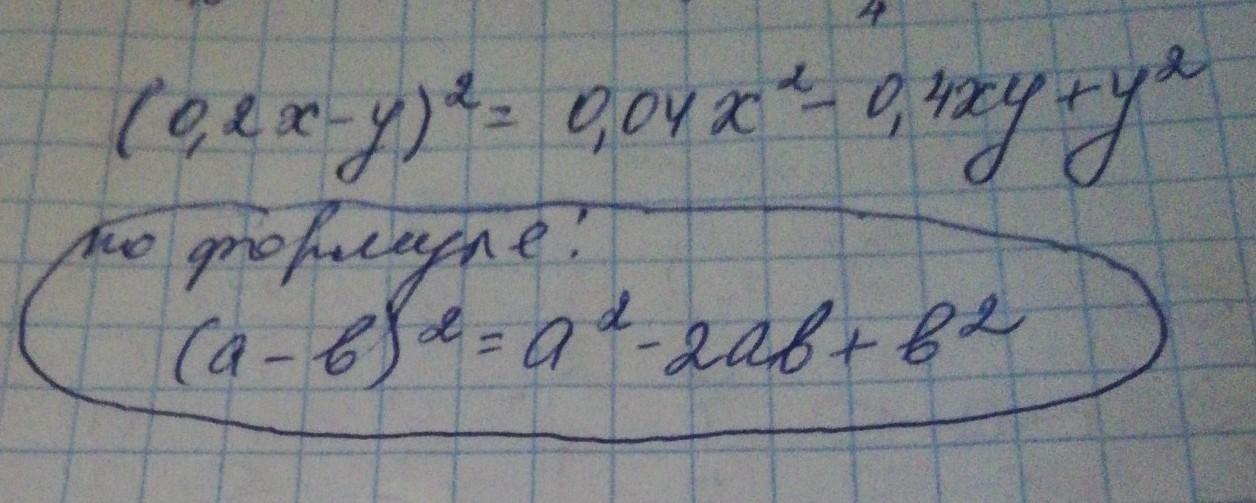 (0,2x-y)² = 0,04x² - 0,4xy + y²
по формуле:
(a-b)² = a² - 2ab + b²